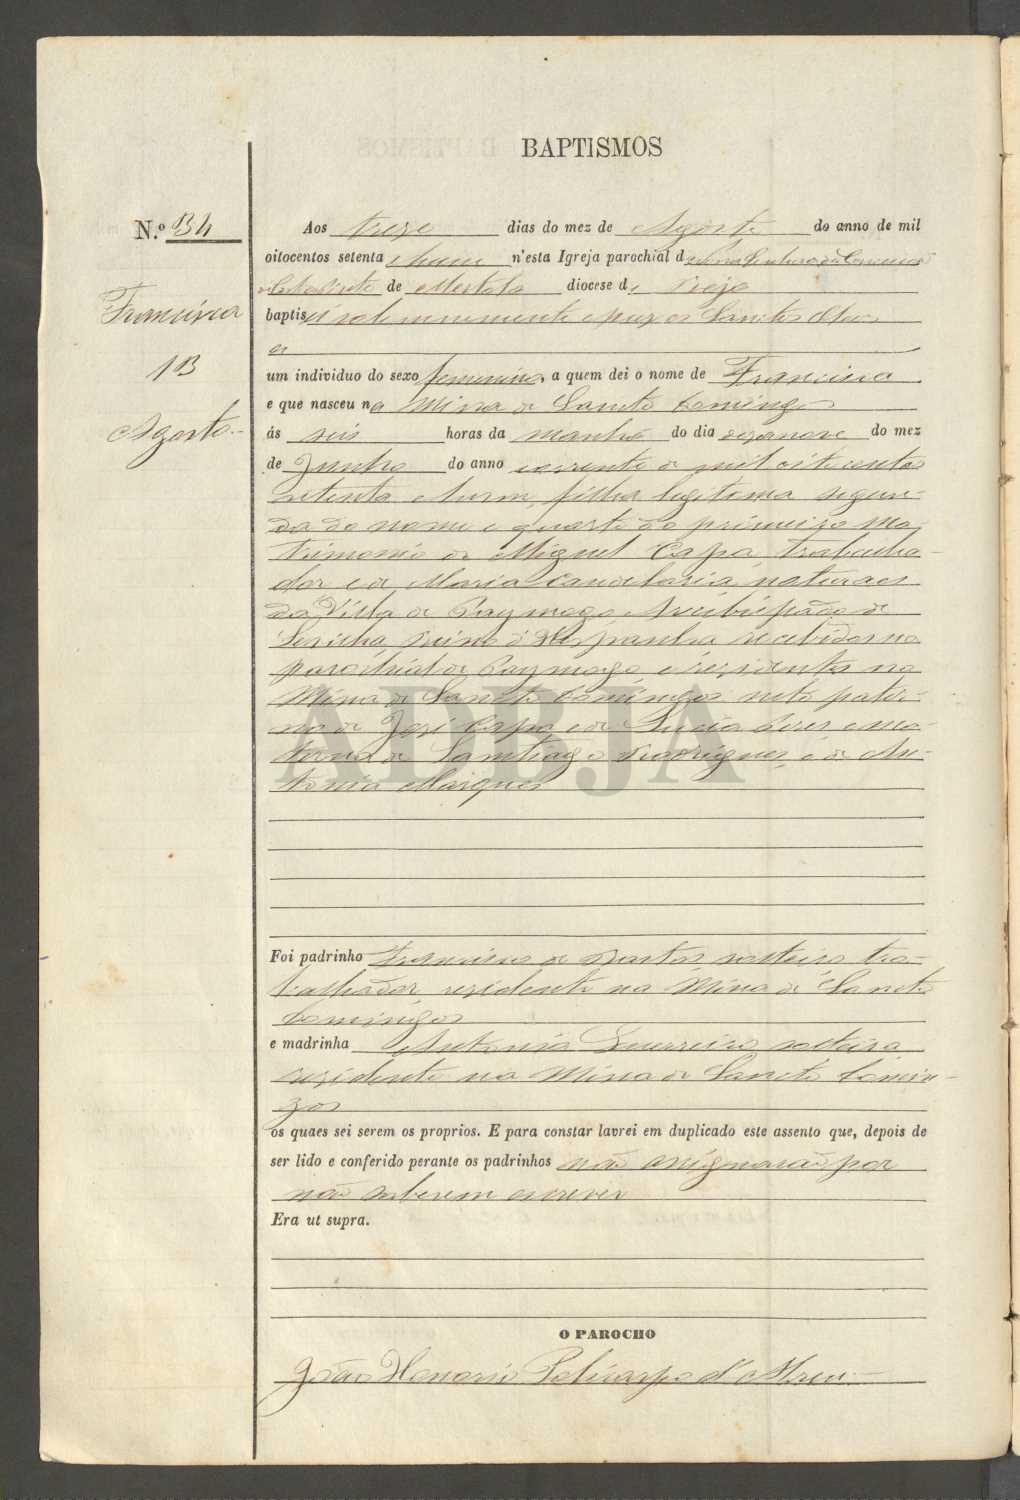 BAPTISMOS
N.º 34
Francisca
13
Agosto
Aos treze dias do mez de Agosto do anno de mil
oitocentos setenta e hum n'esta Igreja parochial de Nossa Senhora da Conceicão
de Mertola diocese de Beja
baptisei solemnemente e puz os Sanctos Oleos
a
um individuo do sexo femenino, a quem dei o nome de Francisca
e que nasceu na Mina de Sancto Domingos
ás seis horas da manhã do dia dezanove do mez
de Junho do anno corrente de mil oitocentos
setenta e hum, filha legitima segun-
da do nome e quarta do primeiro ma
trimonio de Miguel Capa, trabalha-
dor e de Maria Candelaria, naturaes
da Villa de Paymogo, Arcebispado de
Sevilha Reino d'Hespanha recebidos na
parochial de Paymogo e rezidentes na
Mina de Sancto Domingos neta pater-
na de José Capa e de Peres e ma-
terna de Santiago Rodrigues, e de An-
tonia Marques
Foi padrinho Francisco de solteiro tra-
balhador, rezidente na Mina de Sancto
Domingos
e madrinha Antonia Guerreiro solteira
rezidente na Mina de Sancto Domin-
gos
os quaes sei serem os proprios. E para constar lavrei em duplicado este assento que, depois de
ser lido e conferido perante os padrinhos não assignarão por
não saberem escrever
Era ut supra.
O PAROCHO
João Honorio Policarpo d'Abreu
ADBJA